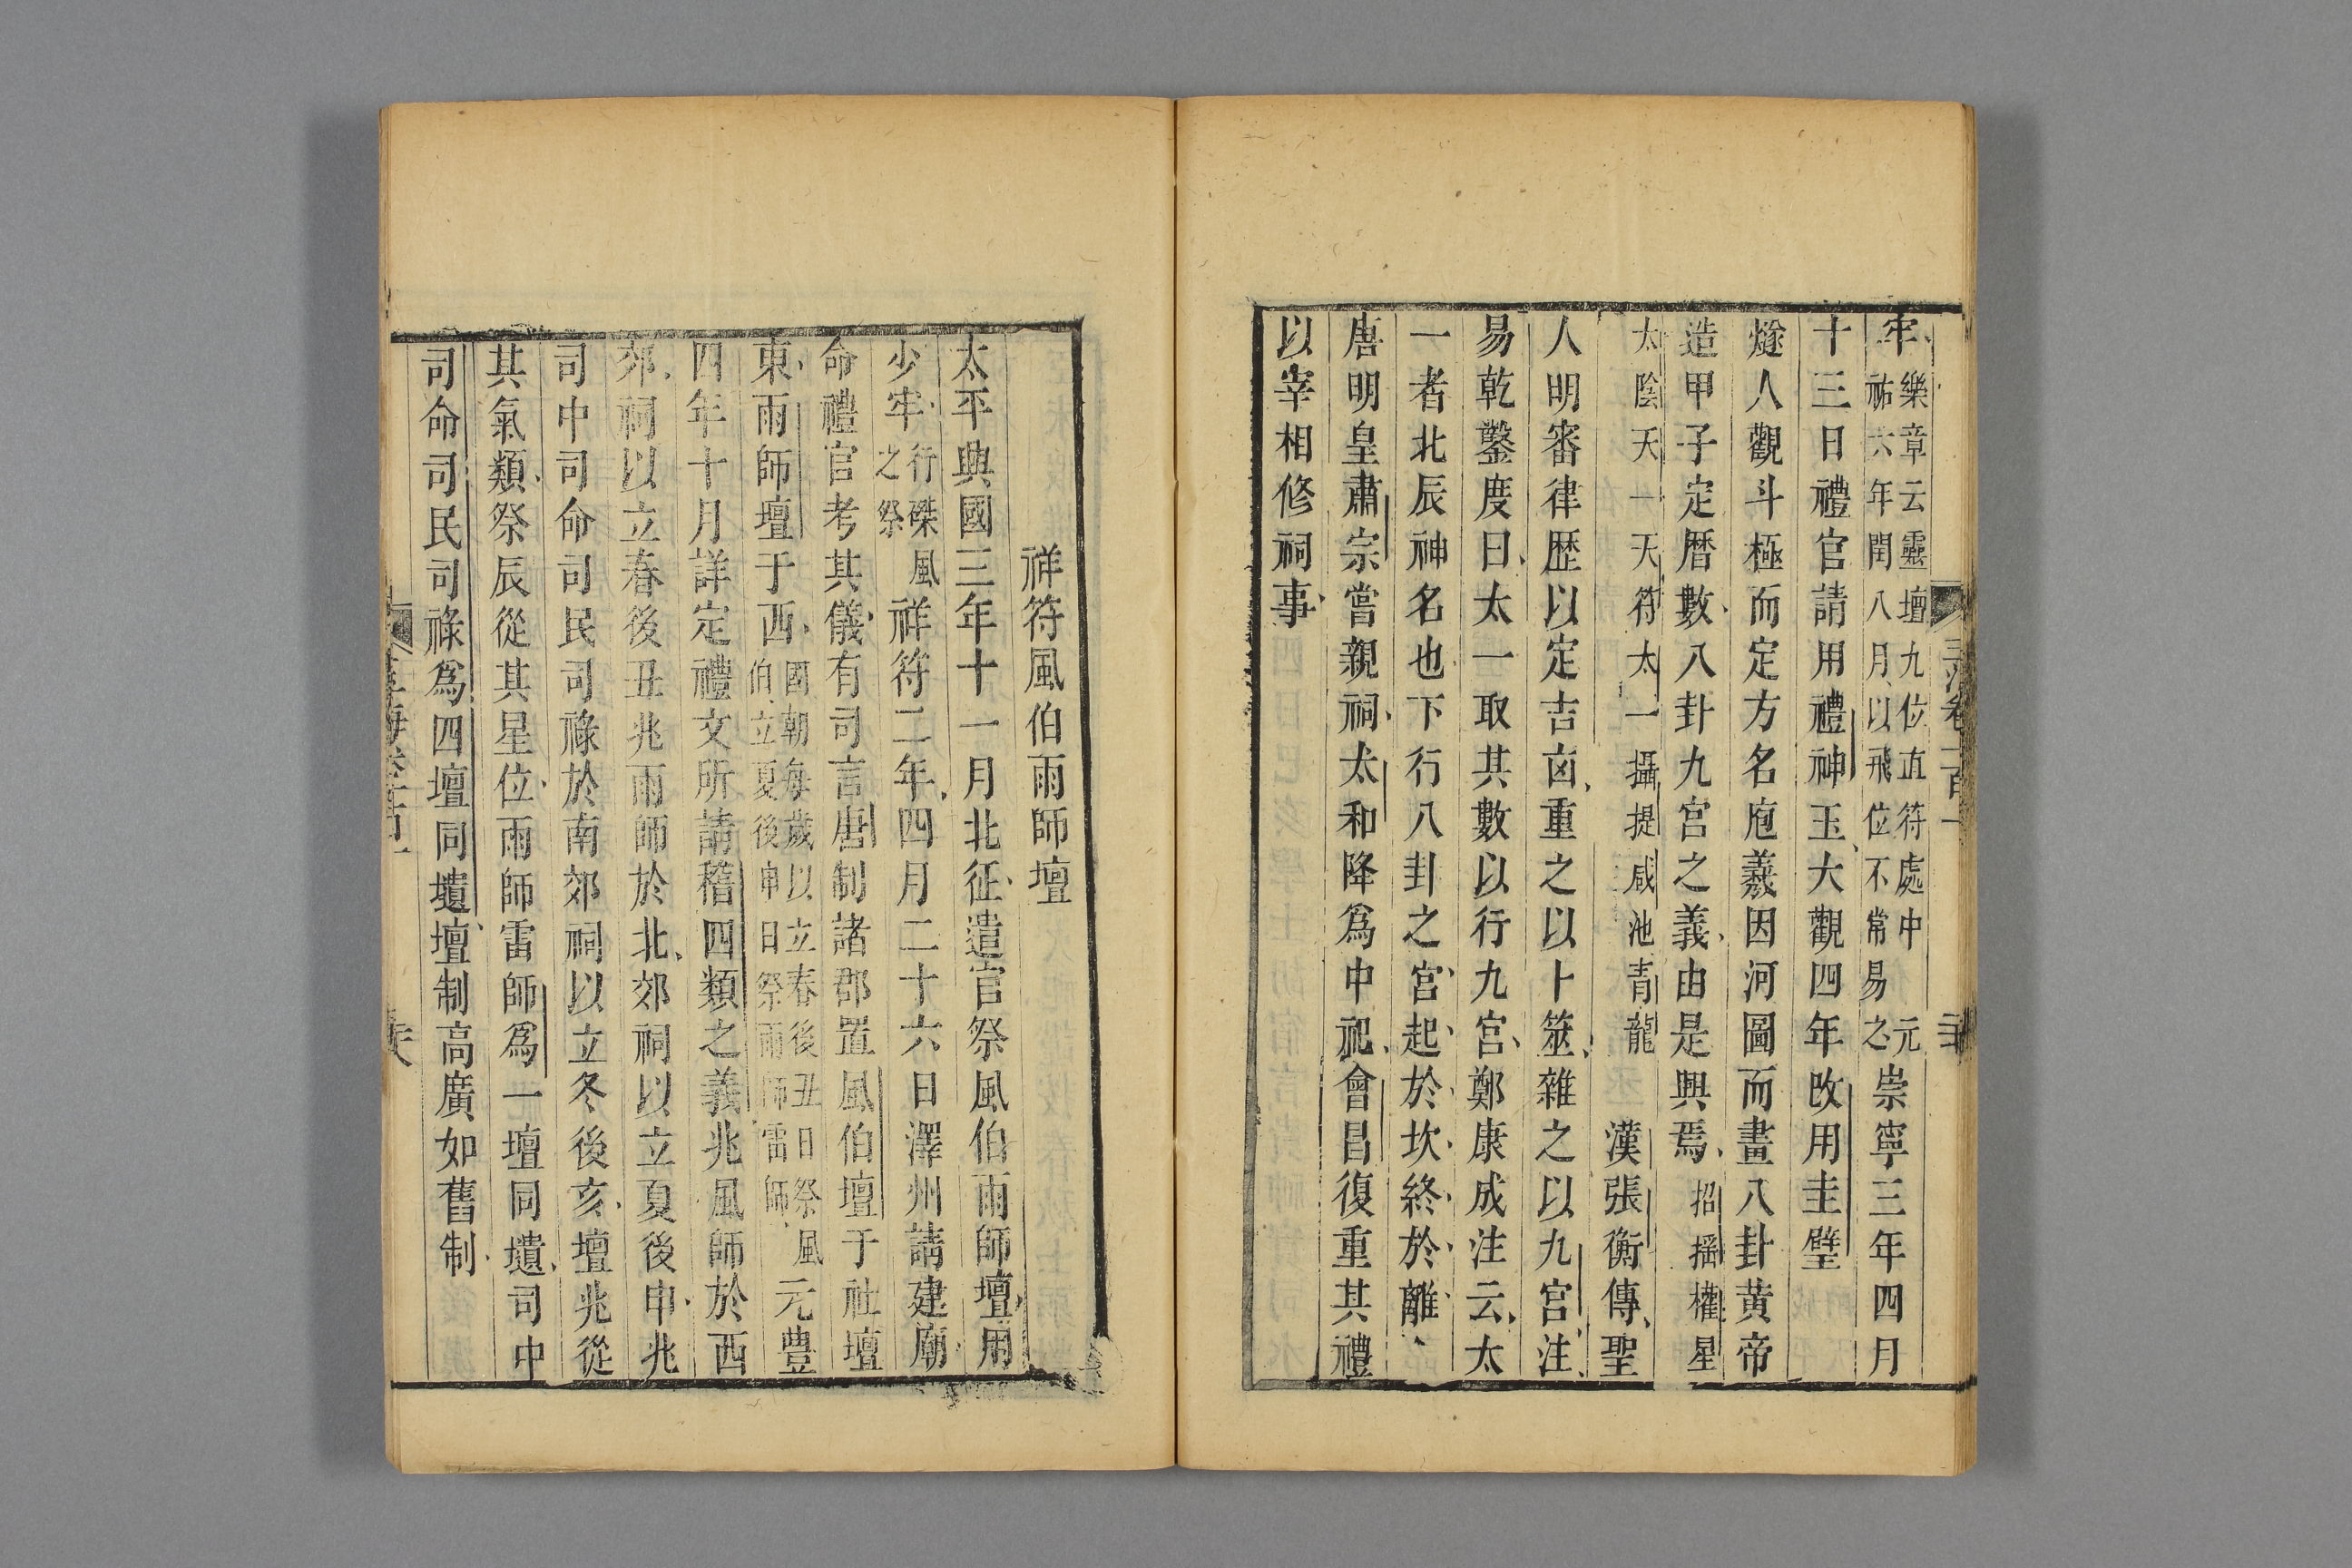 牢樂章云靈壇九位直符處中元祐六年閏八月以飛位不常易之崇寧三年四月
十三日禮官請用禮神玉大觀四年改用圭璧
燧人觀斗極而定方名庖羲因河圖而畫八卦黃帝
造甲子定曆數八卦九宮之義由是興焉招搖權星
太陰天一天符太一攝提咸池青龍漢張衡傳聖
人明審律歷以定吉凶重之以卜筮雜之以九宮注
易乾鑿度曰太一取其數以行九宮鄭康成注云太
一者北辰神名也下行八卦之宮起於坎終於離
唐明皇肅宗嘗親祠太和降爲中祀會昌復重其禮
以宰相修祠事
祥符風伯雨師壇
太平興國三年十一月北征遣官祭風伯雨師壇用
少牢行磔風之祭祥符二年四月二十六日澤州請建廟
命禮官考其儀有司言唐制諸郡置風伯壇于社壇
東雨師壇于西國朝每歲以立春後丑日祭風伯立夏後申日祭雨師雷師元豐
四年十月詳定禮文所請稽四類之義兆風師於西
郊祠以立春後丑兆雨師於北郊祠以立夏後申兆
司中司命司民司祿於南郊祠以立冬後亥壇兆從
其氣類祭辰從其星位雨師雷師爲一壇同壝司中
司命司民司祿爲四壇同壝壇制高廣如舊制